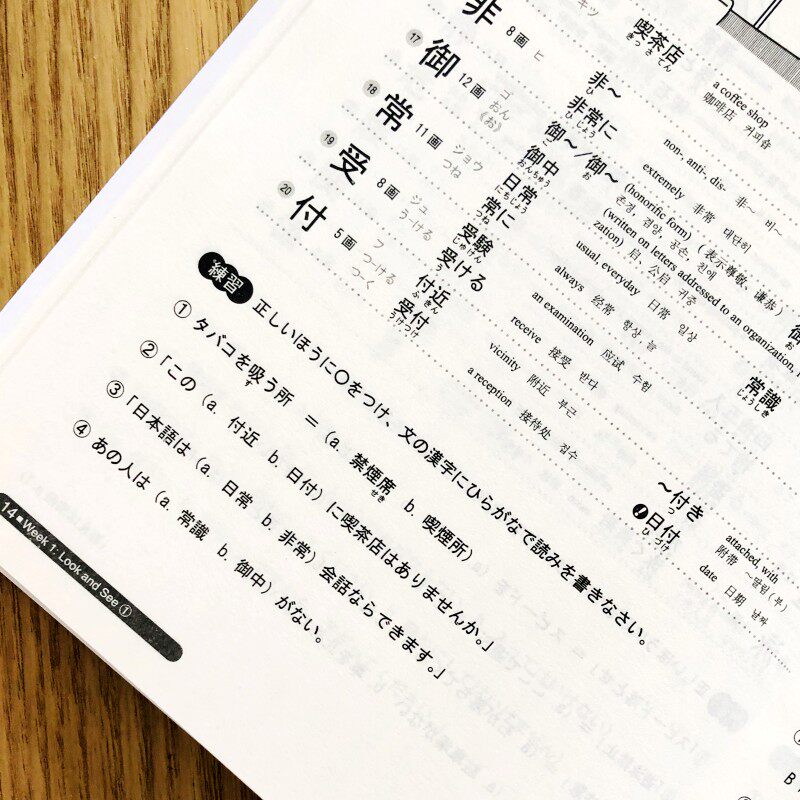 キツ 喫茶店 a coffee shop
きっさてん 咖啡店 커피숍
非 8画 ヒ 非〜 non-, anti-, dis- 非〜 비〜
ひ
非常に extremely 非常 대단히
ひじょう
⑰ 御 12画 ゴ 御〜/御〜 (honorific form) (表示尊敬、谦恭)
おん ご お 존경, 겸양, 공손, 친애
《お》 御中 (written on letters addressed to an organization,
おんちゅう zation) 启, 公启 귀중
⑱ 常 11画 ジョウ 日常 usual, everyday 日常 일상 常識
つね にちじょう じょうしき
常に always 经常 항상 늘
つね
⑲ 受 8画 ジュ 受験 an examination 应试 수험
うける じゅけん
受ける receive 接受 받다
う
⑳ 付 5画 フ 付近 vicinity 附近 부근 〜付き attached, with
つける ふきん つ 附带 〜딸림(부)
つく 受付 a reception 接待处 접수 ❗日付 date 日期 날짜
うけつけ ひづけ
練習 正しいほうに○をつけ、文の漢字にひらがなで読みを書きなさい。
① タバコを吸う所 ＝（a. 禁煙席 b. 喫煙所）
す せき
② 「この（a. 付近 b. 日付）に喫茶店はありませんか。」
③ 「日本語は（a. 日常 b. 非常）会話ならできます。」
④ あの人は（a. 常識 b. 御中）がない。
14 Week 1: Look and See ①